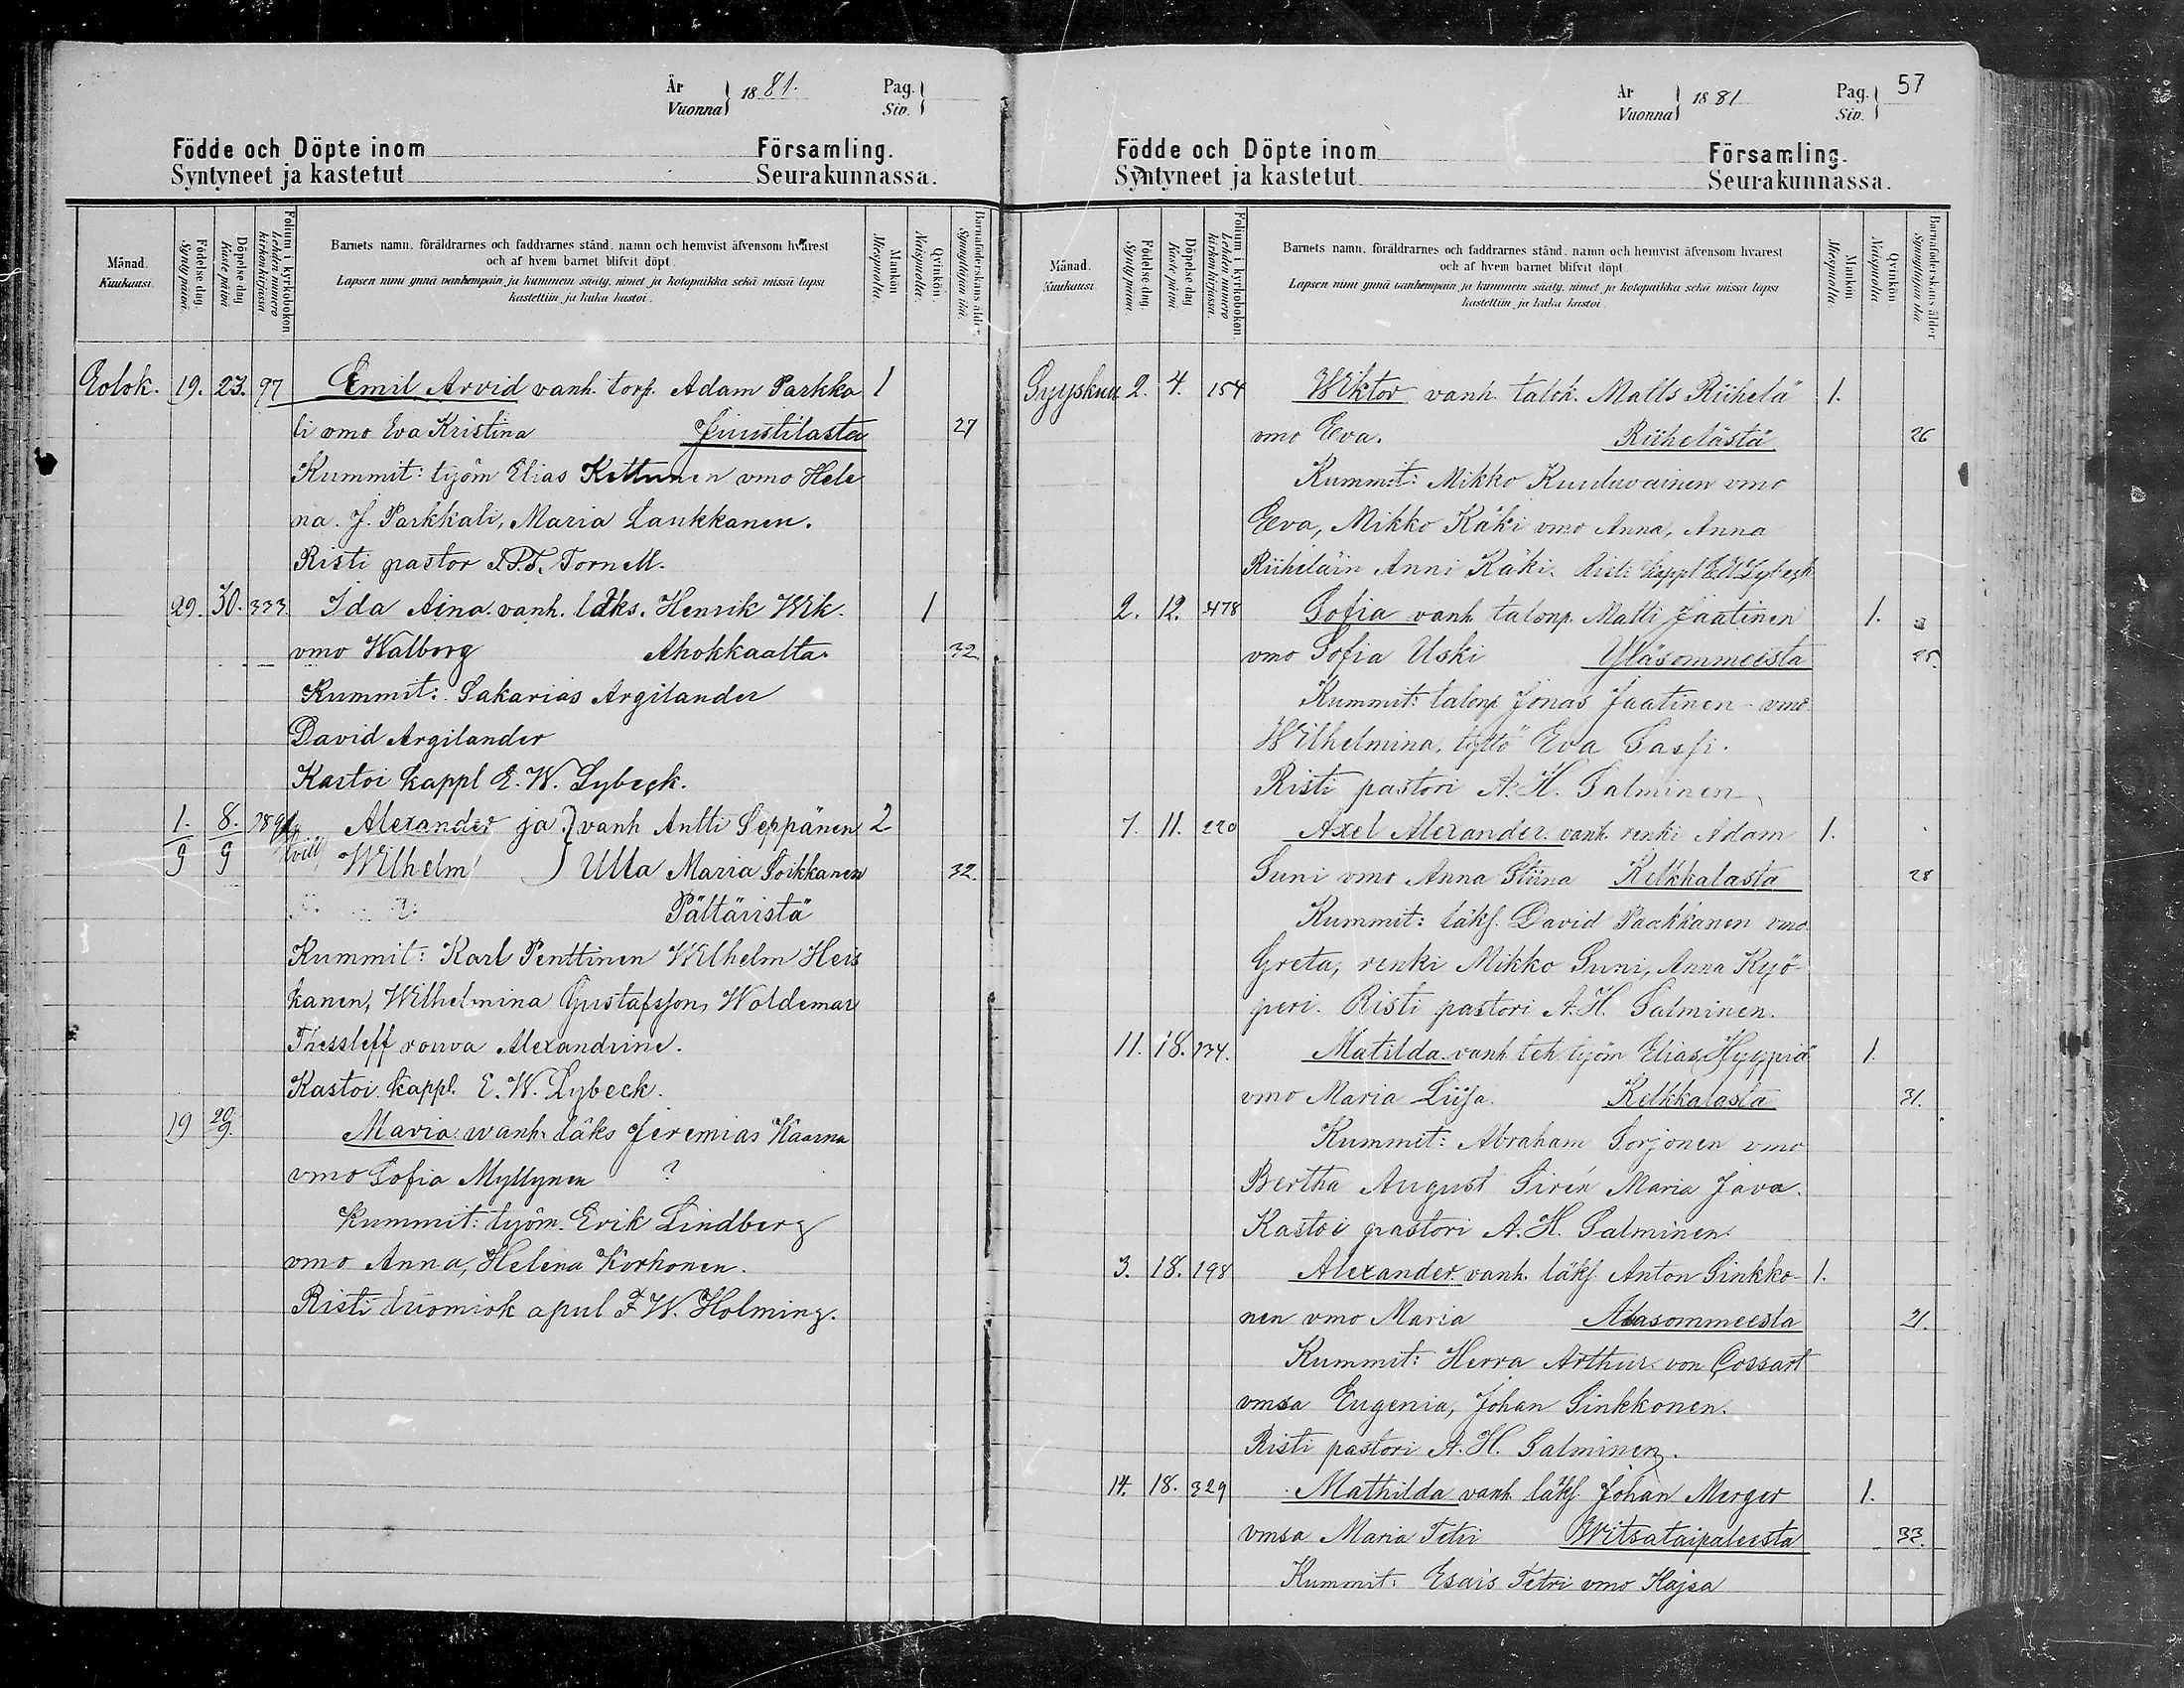 År
Vuonna
1881.
Pag.
Siv.
Födde och Döpte inom Församling.
Syntyneet ja kastetut Seurakunnassa.
Månad.
Kuukausi.
Födelse-dag.
Syntypäivä.
Döpelse-dag.
Kastepäivä
Folium i kyrkoboken
Lehden numero kirkonkirjassa.
Barnets namn, föräldrarnes och faddrarnes stånd, namn och hemvist äfvensom hvarest
och af hvem barnet blifvit döpt.
Lapsen nimi ynnä vanhempain ja kummein sääty, nimet ja kotopaikka sekä missä lapsi
kastettiin ja kuka kastoi.
Mankön
Miespuolia.
Qvinkön
Naispuolia.
Barnaföderskans ålder
Synnyttäjän ikä.
Elok. 19. 23. 97 Emil Arvid vanh. torp. Adam Parkka 1
li vmo Eva Kristina Juustilasta 27
Kummit: työm Elias Kettunen vmo Hele
na. J. Parkkali, Maria Laukkanen.
Risti pastor J.P.T. Tornell.
29. 30. 333. Ida Aina vanh. läks. Henrik Wik. 1
vmo Walborg Ahokkaalta. 32
Kummit: Sakarias Argilander
David Argilander
Kastoi kappl E. W. Lybeck.
1. 8. Alexander ja } vanh Antti Seppänen 2
9 9 Wilhelm } Ulla Maria Toikkanen 32.
Pältäristä
Kummit: Karl Penttinen Wilhelm Heis
kanen, Wilhelmina Gustafsson, Woldemar
Thessleff rouva Alexandrine.
Kastoi kappl. E. W. Lybeck.
19 20/9. Maria wanh. läks Jeremias Kaarna
vmo Sofia Myllynen ?
Kummit: työm. Erik Lindberg
vmo Anna, Helena Korhonen.
Risti tuomiok apul F W. Holming.
År
Vuonna
1881
Pag.
Siv.
57
Födde och Döpte inom Församling.
Syntyneet ja kastetut Seurakunnassa.
Månad.
Kuukausi.
Födelse-dag.
Syntypäivä.
Döpelse-dag.
Kastepäivä.
Folium i kyrkoboken.
Lehden numero kirkonkirjassa.
Barnets namn, föräldrarnes och faddrarnes stånd, namn och hemvist äfvensom hvarest
och af hvem barnet blifvit döpt.
Lapsen nimi ynnä vanhempain ja kummein sääty, nimet ja kotopaikka sekä missä lapsi
kastettiin ja kuka kastoi.
Mankön
Miespuolia.
Qvinkön
Naispuolia.
Barnaföderskans ålder
Synnyttäjän ikä
Syyskuu 2. 4. 154 Wiktor vanh. talok. Matts Riihelä 1.
vmo Eva. Riihelästä 26
Kummit: Mikko Kuuluvainen vmo
Eva, Mikko Käki vmo Anna, Anna
Riiheläin Anni Käki. Risti kappl E W Lybeck
2. 12. 478 Sofia vanh. talonp. Matti Jaatinen 1.
vmo Sofia Uski Yläsommeesta 25.
Kummit: talonp Jonas Jaatinen vmo
Wilhelmina, tyttö Eva Sasfi.
Risti pastori A. H. Salminen
7. 11. 220 Axel Alexander vanh. renki Adam 1.
Suni vmo Anna Stiina Kelkkalasta 28
Kummit: läks. David Paakkanen vmo
Greta, renki Mikko Suni, Anna Kyö-
peri. Risti pastori A. H. Salminen.
11. 18. 234. Matilda vanh. teh. työm Elias Hyyppiä 1.
vmo Maria Liisa. Kelkkalasta 31.
Kummit: Abraham Sorjonen vmo
Bertha August Sirén Maria Java.
Kastoi pastori A. H. Salminen.
3. 18. 198 Alexander vanh. läks. Anton Sinkko- 1.
nen vmo Maria Alasommeesta 21.
Kummit: Herra Arthur von Cossart
vmsa Eugenia, Johan Sinkkonen.
Risti pastori A. H. Salminen.
14. 18. 329 Mathilda vanh läks. Johan Merger 1.
vmsa Maria Tetri Witsataipaleesta 33.
Kummit: Esais Tetri vmo Kajsa